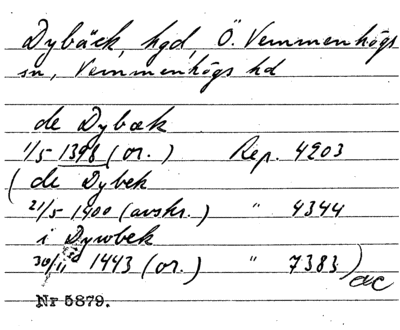 Dybäck, hgd, Ö. Vemmenhögs
sn, Vemmenhögs hd
de Dybæk
1/5 1398 (or.) Rep. 4203
(de Dybek
21/5 1400 (avskr.) " 4344
i Dywbek
30/11 1443 (or.) " 7383)
Nr 5879.